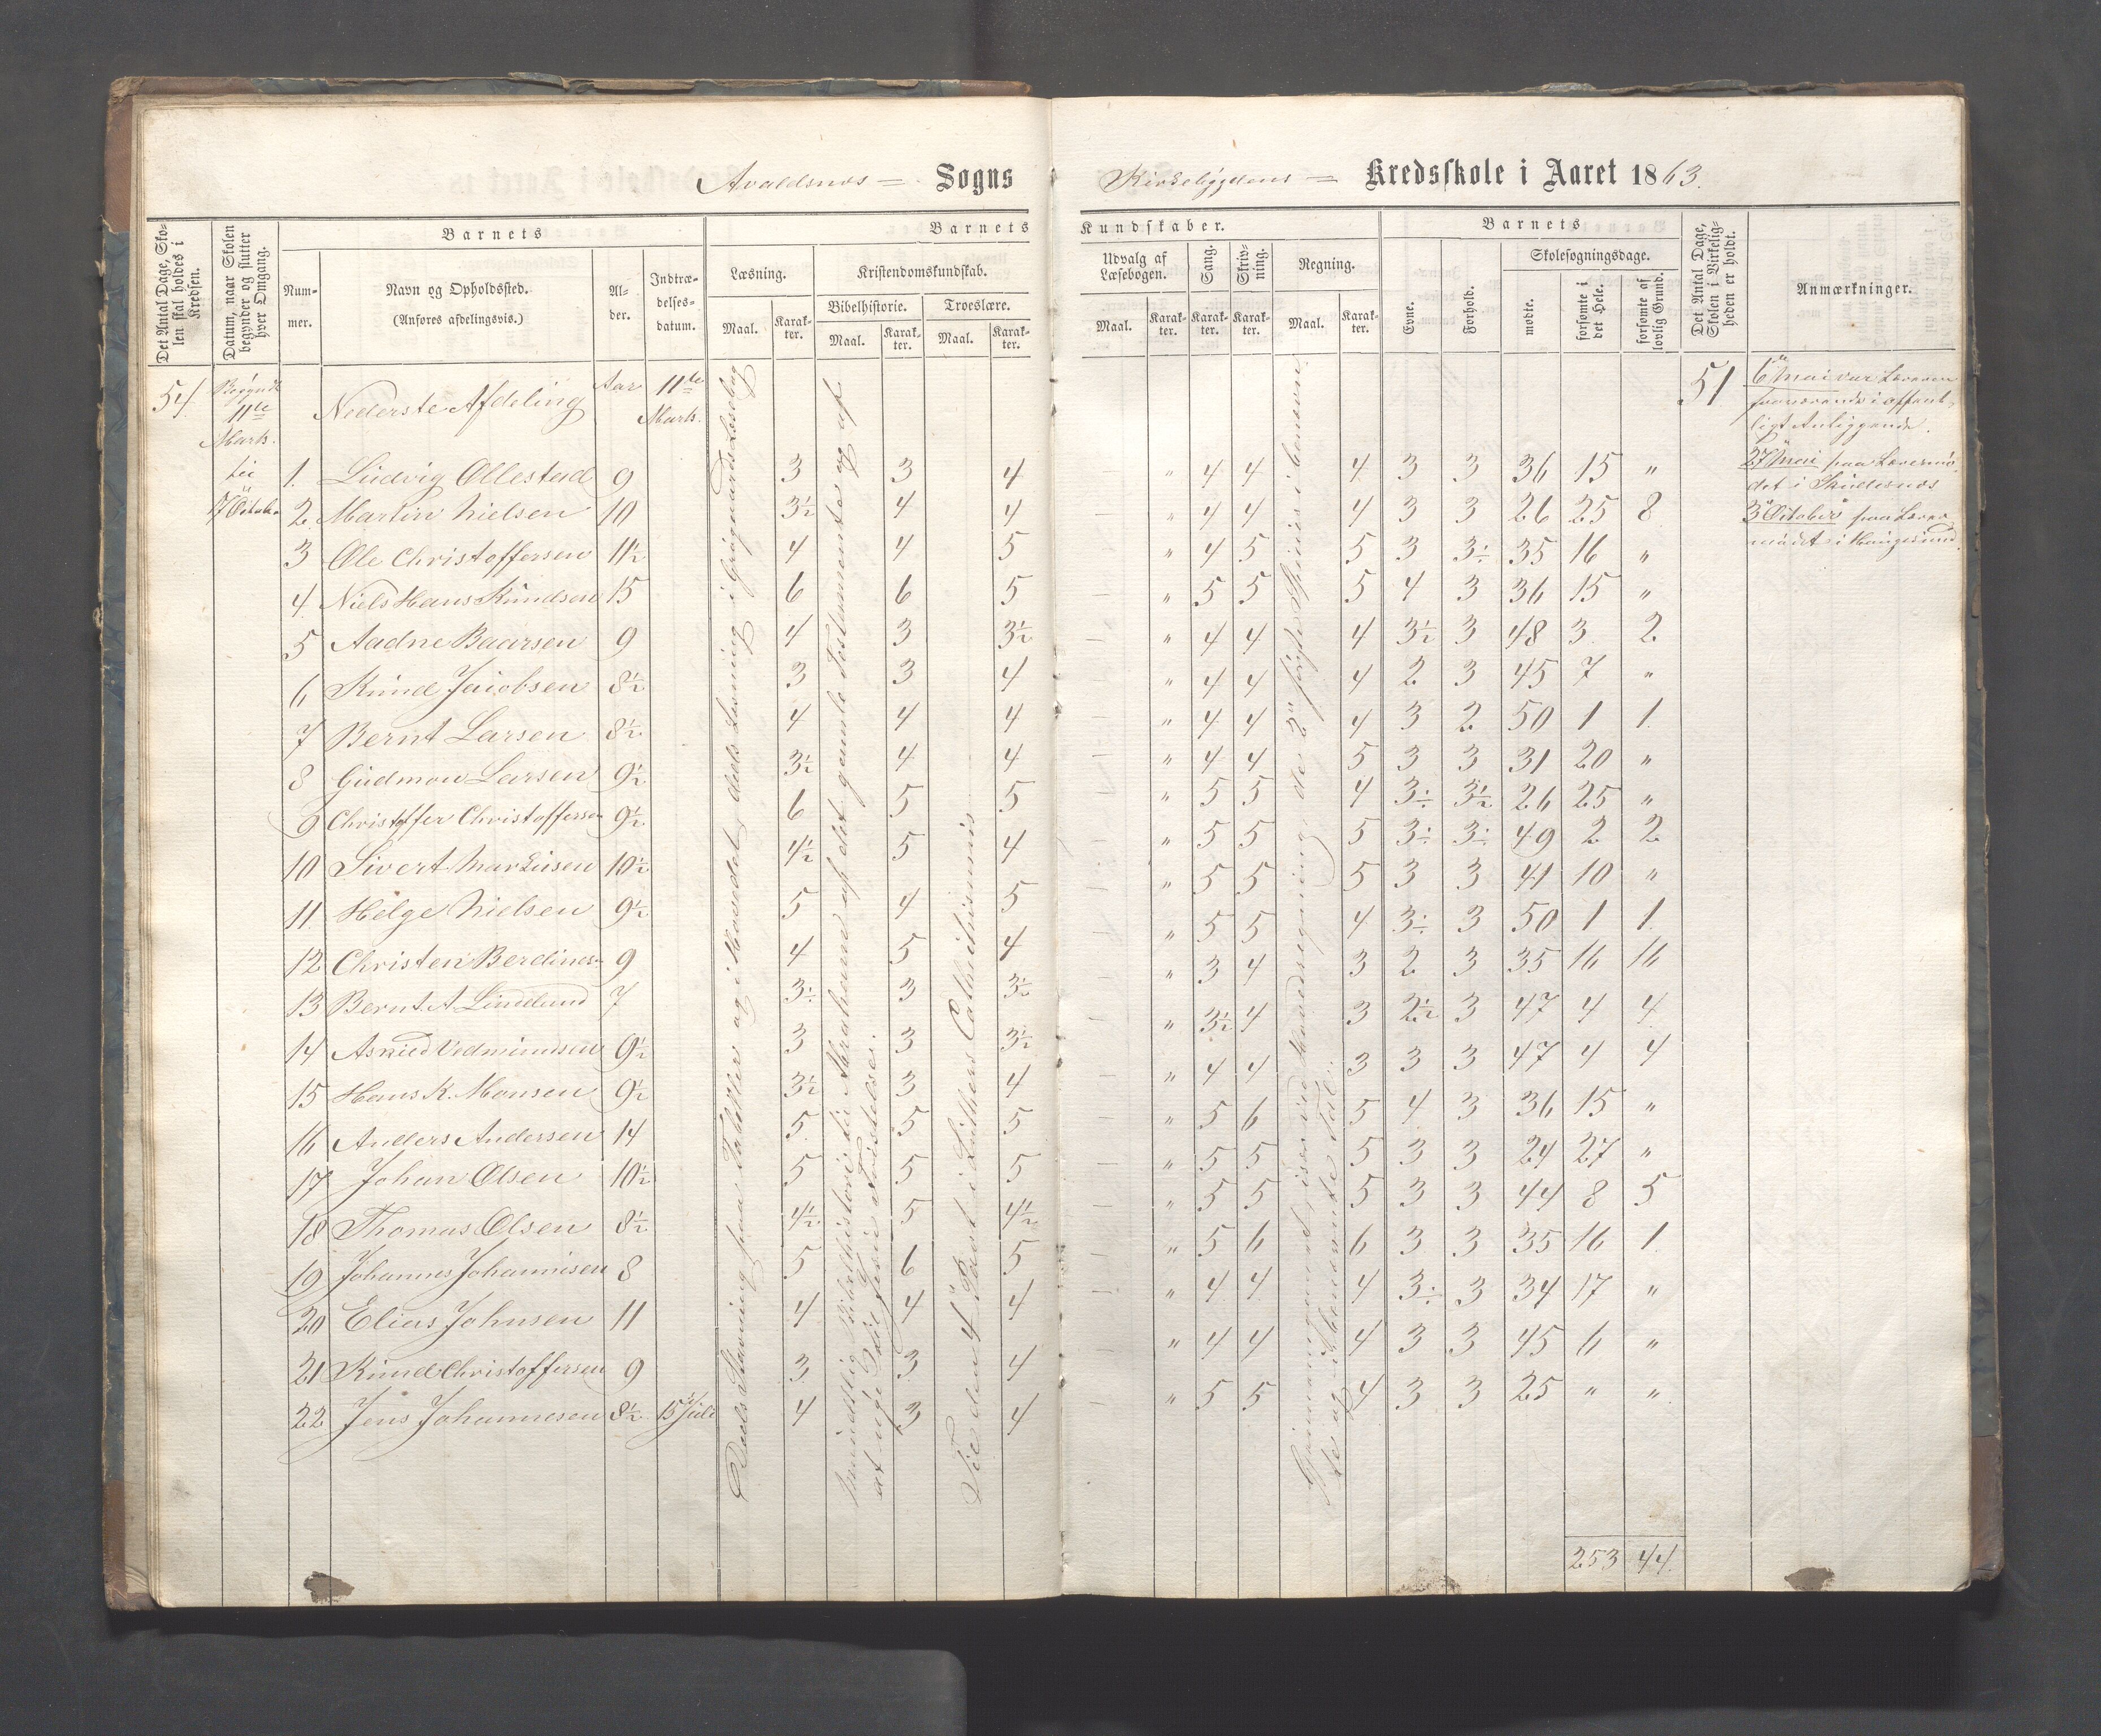 Avaldsnes Sogns
Kirkebygdens Kredsskole i Aaret 1863.
Det Antal Dage, Sko-
len skal holdes i
Kredsen.
Datum, naar Skolen
begynder og slutter
hver Omgang.
Barnets
Num-
mer.
Navn og Opholdssted.
(Anføres afdelingsvis.)
Al-
der.
Indtræ-
delses-
datum.
Barnets
Læsning.
Maal.
Karak-
ter.
Kristendomskundskab.
Bibelhistorie.
Maal.
Karak-
ter.
Troeslære.
Maal.
Karak-
ter.
Kundskaber.
Udvalg af
Læsebogen.
Maal.
Karak-
ter.
Sang.
Karak-
ter.
Skriv-
ning.
Karak-
ter.
Regning.
Maal.
Karak-
ter.
Barnets
Evne.
Forhold.
Skolesøgningsdage.
mødte.
forsømte i
det Hele.
forsømte af
lovlig Grund.
Det Antal Dage,
Skolen i Virkelig-
heden er holdt.
Anmærkninger.
54 Begyndt
11te
Marts.
til
7 Octob.
Nederste Afdeling Aar 11te
Marts.
51
6 Mai var Læreren
fraværende i offent-
ligt Anliggende.
27 Mai paa Læremø-
det i Skudesnes
3 October paa Lærer
mødet i Haugesund
1. Ludvig Ollestad 9 3 3 4 — " 4 4 4 3 3 36 15 "
2. Martin Nielsen 10 3½ 4 4 — " 4 4 4 3 3 26 25 8
3 Ole Christoffersen 11½ 4 4 5 — " 4 5 5 3 3÷ 35 16 "
4. Niels Hans Knudsen 15 6 6 5 — " 5 5 5 4 3 36 15 "
5 Aadne Baarsen 9 4 3 3½ — " 4 4 4 3½ 3 48 3 2
6 Knud Jacobsen 8½ 3 3 4 — " 4 4 4 2 3 45 7 "
7 Bernt Larsen 8½ 4 4 4 — " 4 4 4 3 2 50 1 1
8 Gudmon Larsen 9½ 3½ 4 4 — " 4 4 5 3 3 31 20 "
9 Christoffer Christoffersen 9½ 6 5 5 — " 5 5 4 3÷ 3½ 26 25 "
10 Sivert Markusen 10½ 4½ 5 4 — " 5 5 5 3÷ 3÷ 49 2 2
11 Helge Nielsen 9½ 5 4 5 — " 5 5 5 3 3 41 10 "
12 Christen Berdines 9 4 5 4 — " 5 5 4 3÷ 3 50 1 1
13 Bernt A Lindlund 7 3÷ 3 3½ — " 3 4 3 2 3 35 16 16
14 Vedmundsen 9½ 3 3 3½ — " 3½ 4 3 2½ 3 47 4 4
15 Hans K. Monsen 9½ 3½ 3 4 — " 4 4 3 3 3 47 4 4
16 Anders Andersen 14 5 5 5 — " 5 6 5 4 3 36 15 "
17 Johan Olsen 10½ 5 5 5 — " 5 5 5 3 3 24 27 "
18 Thomas Olsen 8½ 4½ 5 4½ — " 5 5 5 3 3 44 8 5
19 Johannes Johannesen 8 5 6 5 — " 5 6 6 3 3 35 16 1
20 Elias Johnsen 11 4 4 4 — " 4 4 4 3÷ 3 34 17 "
21 Knud Christoffersen 9 3 3 4 — " 4 4 4 3 3 45 6 "
22 Jens Johannesen 8½ 15 Juli 4 3 4 — " 5 5 4 3 3 25 " "
Deels Stavning paa Tabeller og i Hovedet, deels Læsning i Læsebog
Mundtlig Bibelhistorie til Abraham af det gamle Testamente og af
det nye til Jesu Fristelse.
Til den 4 Part i Luthers Catechismus
de 2 første Species i benævn-
te og ubenævnte Tal.
253 44